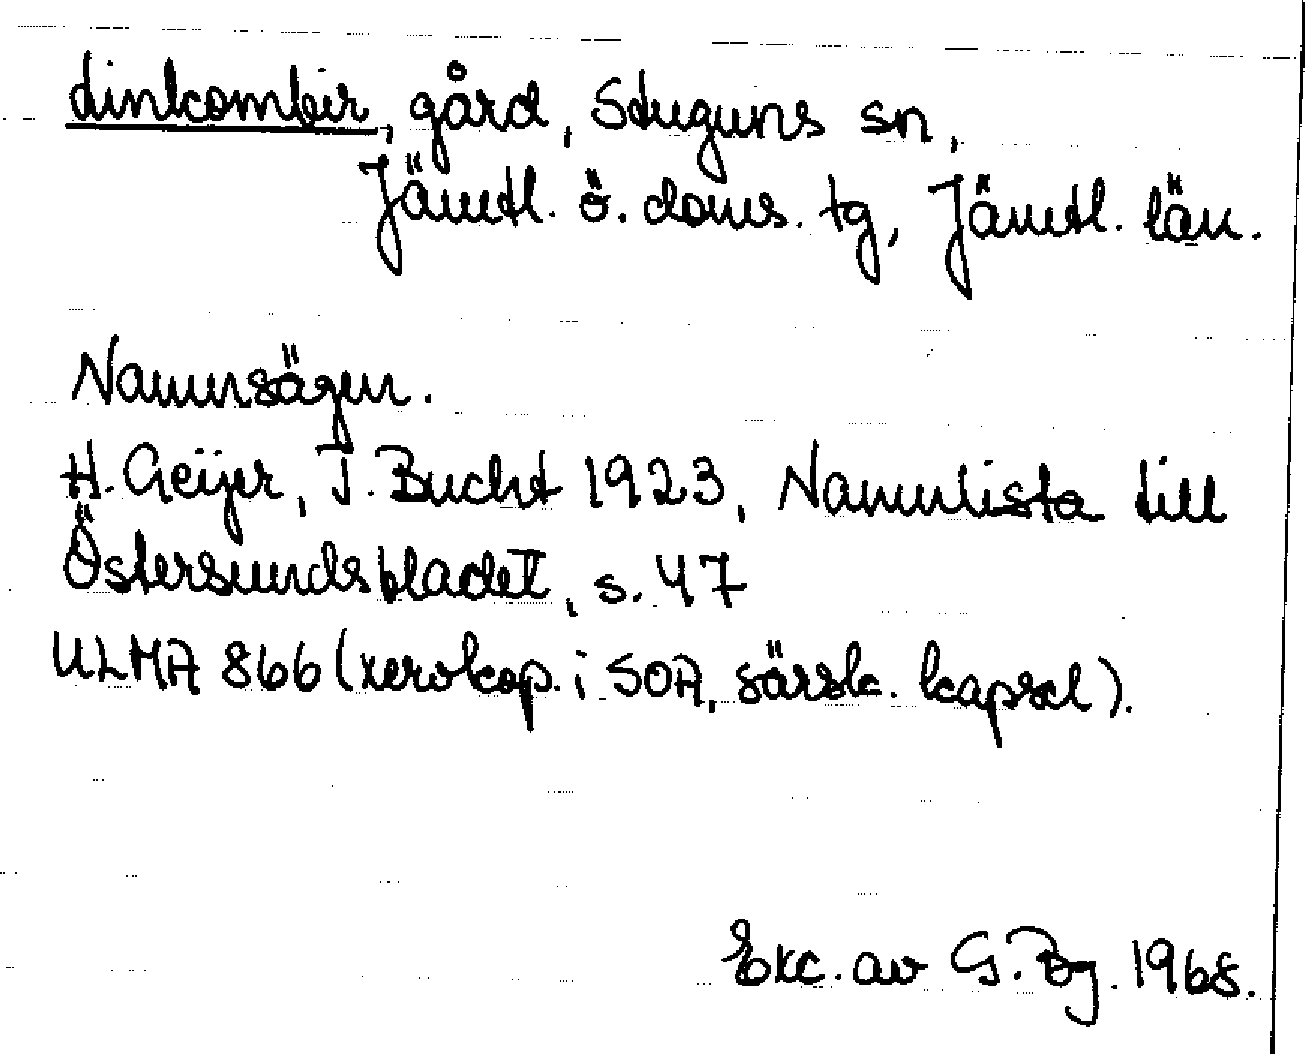 Linkombir, gård, Stuguns sn,
Jämtl. ö. doms. tg, Jämtl. län.
Namnsägen.
H. Geijer, J. Bucht 1923, Namnlista till
Östersundsbladet, s. 47
ULMA 866 (xerokop. i SOA, särsk. kapsel).
Exc. av G. Bg. 1968.